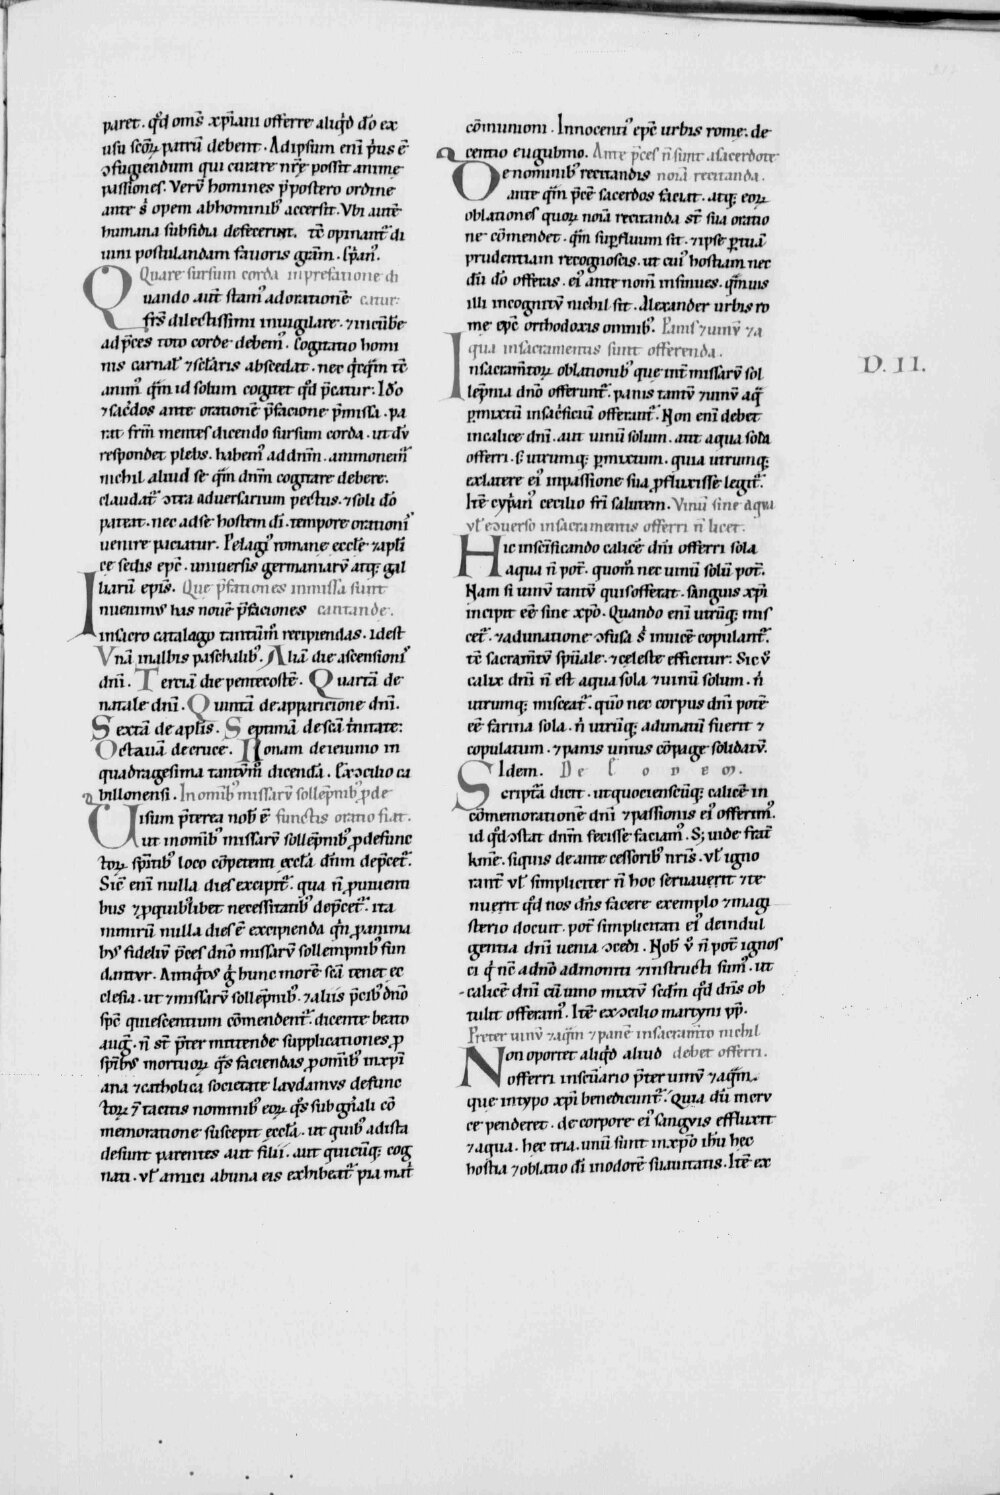 paret. qd̾ om̅s xp̅iani offerre aliqd̾ dō ex
usu sc̅oꝝ patrū debent. Adipsum eni̅ pͥus ē
ɔfugiendum qui curare nr̅ę possit anime
passiones. Verv̅ homines p̅postero ordine
ante sͥ opem abhominibꝰ accersit. Vbi aute̅
humana subsidia defecerint. tē opinant᷑ di
uini postulandam fauoris gr̅am. Ip̅anꝰ.
Quare sursum corda inprefatione di
Quando aut̅ stamꝰ adoratione̅ catur.
fr̅s dilectissimi inuigilare. ⁊incūbe
ad p̅ces toto corde debemꝰ. Cogitatio homi
nis carnal̾ ⁊sclaris abscedat. nec qͥcqͣm tē
animꝰ qͣm id solum cogitet qd̾ p̅catur. Idō
⁊sac̾dos ante oratione̅ p̅facione p̅missa. pa
rat fr̅m mentes dicendo sursum corda. ut dv̅
respondet plebs. habemꝰ ad dn̅m. ammoneat᷑
nichil aliud se qͣm dn̅m cogitare debere.
claudat᷑ ɔtra adversarium pectus. ⁊soli dō
pateat. nec adse hostem di̅. tempore orationiꝰ
venire paciatur. Pelagiꝰ romane eccl̅e ⁊apl̅i
ce sedis ep̅c. universis germaniarv̅ atq; gal
liarū ep̅is. Que p̅fationes inmissa sunt
Inuenimꝰ has noue̅ p̅faciones cantande.
insacro catalago tantūm̊ recipiendas. idest
Vnā inalbis paschalibꝰ. Aliā die ascensioniꝰ
dn̅i. Terciā die pentecostē. Quartā de
natale dn̅i. Quintā de apparicione dn̅i.
Sextā de apl̅is. Septimā de scā tͥnitate.
Octauā decruce. Nonam deieiunio in
quadragesima tantv̅m̊ dicendā. Exɔcilio ca
billonensi. In omībꝰ missarv̅ sollep̅nibꝰ ꝓde
Uisum p̅terea nob̾ ē functis oratio fiat.
ut inomībꝰ missarv̅ sollep̅nibꝰ ꝓdefunc
toꝝ spībꝰ loco cōpetenti eccl̅a dn̅m dep̅cet᷑.
Sic̅ eni̅ nulla dies excipit᷑. qua n̅ ꝓ uiuenti
bus ⁊ꝓquibuslibet necessitatibꝰ dep̅cet᷑. ita
nimirū nulla dies ē excipienda qͥn ꝓ anima
bꝰ fidelivm̅ p̅ces dn̅o missarv̅ sollempnibꝰ fun
dantvr. Antiqͥtꝰ gͦ hunc more̅ scā tenet ec
clesia. ut ⁊missarv̅ sollep̅nibꝰ. ⁊aliis p̅cibꝰ dn̅o
sp̅c quiescentium cōmendent᷑. dicente beato
aug᷑. n̅ st̅ p̅ter mittende supplicationes ꝓ
sp̅ibꝰ mortuoꝝ. qͣs faciendas ꝓ omībꝰ inxp̅i
ana ⁊catholica societate lavdamvs defunc
toꝝ ⁊̅ tacitis nominibꝰ eoꝝ qͣs sub gn̅ali cō
memoratione suscepit eccl̅a. ut quibꝰ adista
desunt parentes aut filii. aut quicūq; cog
nati. vl̾ amici abuna eis exhibeat᷑ pia mat̾
cōmunioni. Innocentiꝰ ep̅c urbis rome. de
centio eugubino. Ante p̅ces n̅ sunt asacerdote
De nominibꝰ recitandis noīa recitanda.
ante qͣm p̅ce̅ sacerdos faciat. atq; eoꝝ
oblationes quoꝝ noīa recitanda st̅ sua oratio
ne cōmendet. qͣm suꝑfluum sit. ⁊ipse ꝑtuā
prudentiam recognoscis. ut cuiꝰ hostiam nec
dū dō offeras. eiꝰ ante nom̅ insinues. qͣmuis
illi incognitv̅ nichil sit. Alexander urbis ro
me ep̅c orthodoxis omnibꝰ. Panis ⁊uinv̅ ⁊a
qua insacramentis sunt offerenda.
Insacramt̅oꝝ oblationibꝰ que int̾ missarv̅ sol
lep̅nia dn̅o offerunt᷑. panis tantv̅ ⁊uinv̅ aqͣ
ꝑmixtū insac̾ficiū offerant᷑. Non eni̅ debet
incalice dn̅i. aut uinū solum. aut aqua sola
offerri. s; utrumq; ꝑmixtum. quia utrumq;
exlatere eiꝰ inpassione sua ꝓfluxisse legit᷑.
Ite̅ cyp̅anꝰ cecilio fr̅i salutem. Vinū sine aqua
vl̾ eɔuerso insacramentis offerri n̅ licet.
Hic insc̅ificando calice̅ dn̅i offerri sola
aqua n̅ pot̅. quom̊ nec uinū solū pot̅.
Nam si uinv̅ tantv̅ quis offerat. sanguis xp̅i
incipit eē sine xp̅o. Quando eni̅ utrūq; mis
cet᷑. ⁊adunatione ɔfusa sͥ inuice̅ copulant᷑.
tē sacramt̅v̅ sp̅uale. ⁊celeste efficitur. Sic v̊
calix dn̅i n̅ est aqua sola ⁊uinū solum. nͥ
utrumq; misceat᷑. quō nec corpus dn̅i pote̅
eē farina sola. nͥ utrūq; adunatū fuerit ⁊
copulatum. ⁊panis unius cōpage solidatv̅.
Idem. De Eodem.
Scriptā dicit. utquociensciq; calice̅ in
cōmemoratione̅ dn̅i ⁊passionis eiꝰ offerimꝰ.
id qd̾ ɔstat dn̅m fecisse faciamꝰ. S; uide frat̾
kme̅. siquis de ante cessoribꝰ nr̅is. vl̾ igno
rant̾ vl̾ simpliciter n̅ hoc servauerit ⁊te
nuerit qd̾ nos dn̅s facere exemplo ⁊magi
sterio docuit. pot̅ simplicitati eiꝰ deindul
gentia dn̅i uenia ɔcedi. Nob̾ v̊ n̅ pot̅ ignos
ci qͥ nc̅ adn̅o admoniti ⁊instructi sumꝰ. ut
calice̅ dn̅i cū uino mixtv̅ scd̅m qd̾ dn̅s ob
tulit offeramꝰ. Ite̅ exɔcilio martyni pp̅.
Preter uinv̅ ⁊aqͣm ⁊pane̅ insacramt̅o nichil
Non oportet aliqd̾ aliud debet offerri.
offerri insc̅uario p̅ter uinv̅ ⁊aqͣm.
que intypo xp̅i benedicunt᷑. Quia dū incrv
ce penderet. de corpore eiꝰ sangvis effluxit
⁊aqua. hec tria. unū sunt inxp̅o ih̅u hec
hostia ⁊oblatio di̅ inodore̅ suauitatis. Ite̅ ex
D. II.